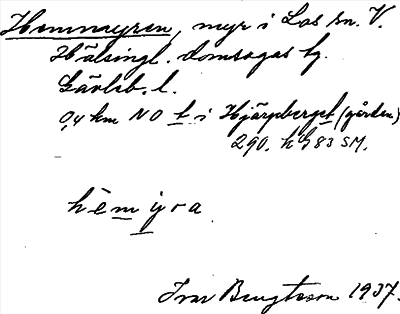 Hemmyren, myr i Los sn. V.
Hälsingl. domsagas tg.
Gävleb. l.
0,4 km NO t i Hjärpberget (gården)
290. h G 83 SM.
hēmyra
Ivar Bengtsson 1937.